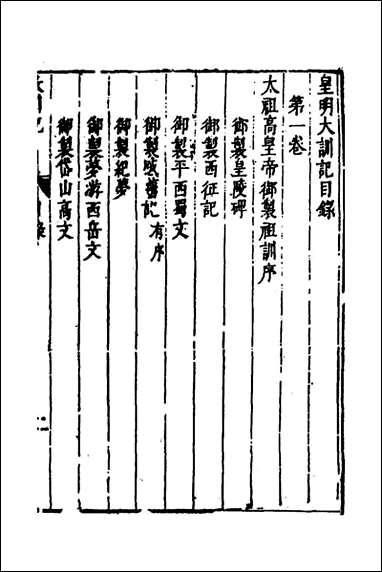 皇明大訓記目錄
第一卷
太祖高皇帝御製祖訓序
御製皇陵碑
御製西征記
御製平西蜀文
御製閱江樓記有序
御製紀夢
御製夢游西岳文
御製岱山高文